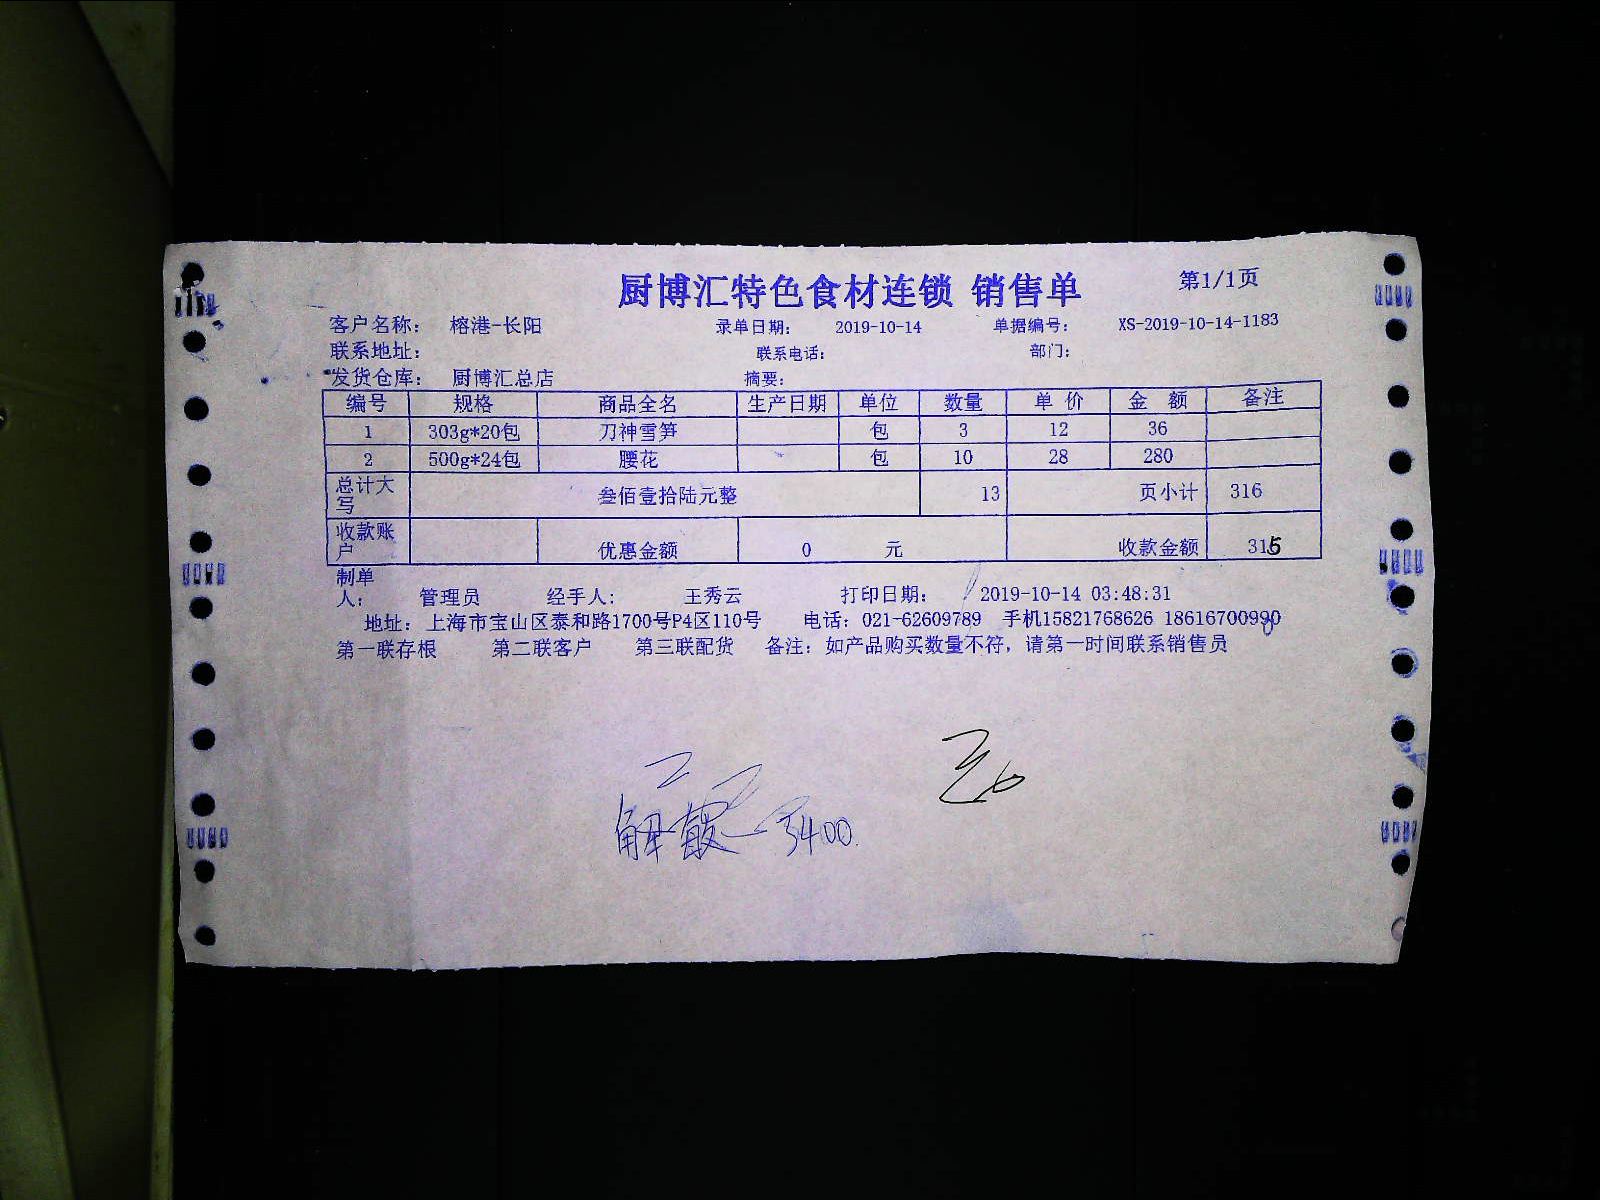 厨博汇特色食材连锁 销售单 第1/1页
客户名称： 榕港-长阳 录单日期： 2019-10-14 单据编号： XS-2019-10-14-1183
联系地址： 联系电话： 部门：
发货仓库： 厨博汇总店 摘要：
编号 规格 商品全名 生产日期 单位 数量 单 价 金 额 备注
1 303g*20包 刀神雪笋 包 3 12 36
2 500g*24包 腰花 包 10 28 280
总计大写 叁佰壹拾陆元整 13 页小计 316
收款账户 优惠金额 0 元 收款金额 315
制单人： 管理员 经手人： 王秀云 打印日期： 2019-10-14 03:48:31
地址：上海市宝山区泰和路1700号P4区110号 电话：021-62609789 手机15821768626 18616700990
第一联存根 第二联客户 第三联配货 备注：如产品购买数量不符，请第一时间联系销售员
3400.